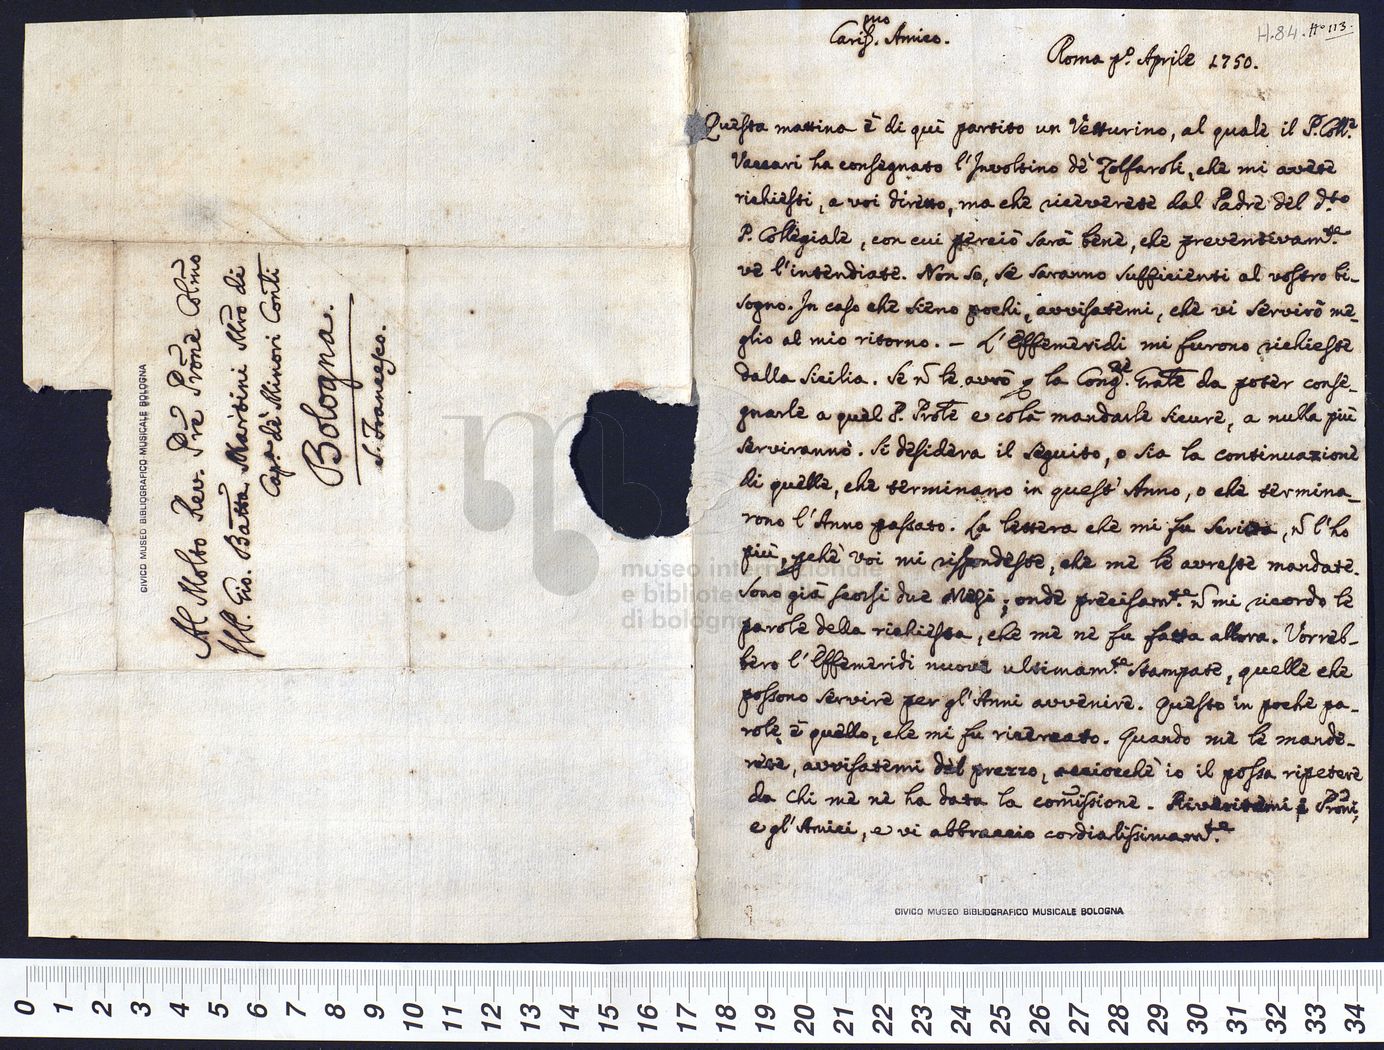 Al Molto Rev. Pre Prone Colmo
Il P. Gio. Batta Martini Mro di
Capp.a de Minori Conti
Bologna.
S. Francesco.
CIVICO MUSEO BIBLIOGRAFICO MUSICALE BOLOGNA
H.84. No 113.
Cariss.mo Amico.
Roma p.o Aprile 1750.
Questa mattina è di qui partito un Vetturino, al quale il P. Coll.e
Vaccari ha consegnato l'Involtino de Zolfaroli, che mi avete
richiesti, a voi diretto, ma che riceverete dal Padre del d.to
P. Collegiale, con cui perciò sarà bene, che preventivam.te
ve l'intendiate. Non so, se saranno sufficienti al vostro bi-
sogno. In caso che sieno pochi, avvisatemi, che vi servirò me-
glio al mio ritorno. - L'Effemeridi mi furono richieste
dalla Sicilia. Se ñ le avrò p la Cong.ne Grale da poter conse-
gnarle a quel P. Prole e colà mandarle sicure, a nulla più
serviranno. Si desidera il seguito, o sia la continuazione
di quelle, che terminano in quest'Anno, o che termina-
rono l'Anno passato. La lettera che mi fu scritta, ñ l'ho
più, pchè voi mi rispondeste, che me le avreste mandate.
Sono già scorsi due Mesi; onde precisam.te ñ mi ricordo le
parole della richiesta, che me ne fu fatta allora. Vorreb-
bero l'Effemeridi nuove ultimam.te stampate, quelle che
possono servire per gl'Anni avvenire. Questo in poche pa-
role è quello, che mi fu ricercato. Quando me le mande-
rete, avvisatemi del prezzo, acciocchè io il possa ripetere
da chi me ne ha data la comissione. Riveritemi i Proni,
e gl'Amici, e vi abbraccio cordialissimam.te
CIVICO MUSEO BIBLIOGRAFICO MUSICALE BOLOGNA
museo internazionale
e biblioteca
di bologna
0 1 2 3 4 5 6 7 8 9 10 11 12 13 14 15 16 17 18 19 20 21 22 23 24 25 26 27 28 29 30 31 32 33 34